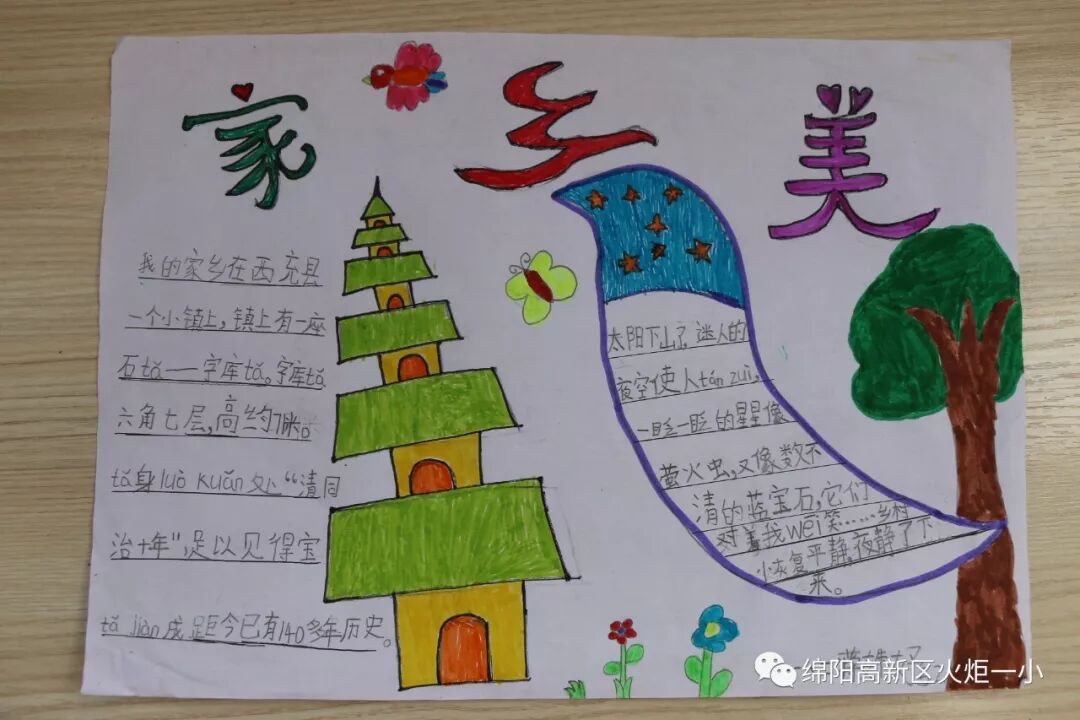 家乡美
我的家乡在西充县
一个小镇上,镇上有一座
石tǎ——字库tǎ,字库tǎ
六角七层,高约7米。
tǎ身luò kuǎn处“清同
治十年”足以见得宝
tǎ jiàn成距今已有140多年历史。
太阳下山了,迷人的
夜空使人táo zuì,
一眨一眨的星星像
萤火虫,又像数不
清的蓝宝石,它们
对着我wēi笑……乡村
恢复平静,夜静了下
来。
绵阳高新区火炬一小